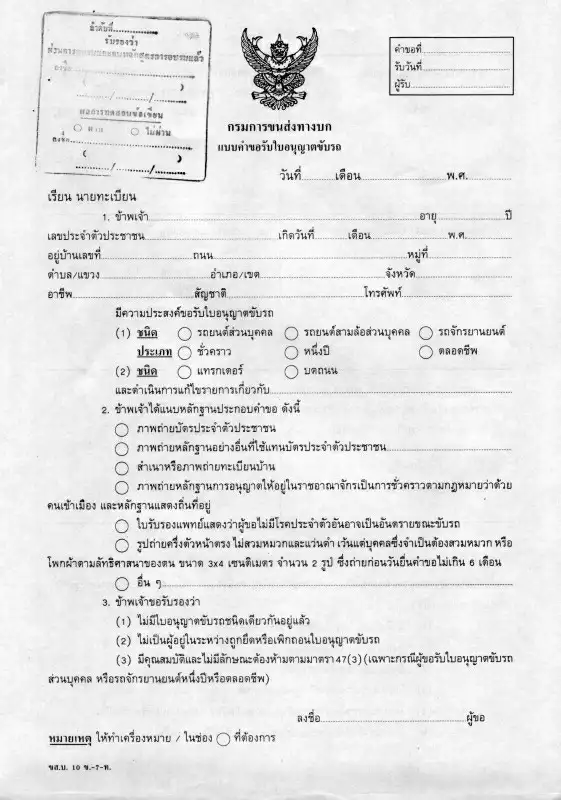 ลำดับที่
รับรองว่า
ลงชื่อ
(                    )
......./......./.......
ผลการทดสอบข้อเขียน
○ ผ่าน ○ ไม่ผ่าน
ลงชื่อ
(                    )
......./......./.......
คำขอที่
รับวันที่
ผู้รับ
กรมการขนส่งทางบก
แบบคำขอรับใบอนุญาตขับรถ
วันที่ เดือน พ.ศ.
เรียน นายทะเบียน
1. ข้าพเจ้า อายุ ปี
เลขประจำตัวประชาชน เกิดวันที่ เดือน พ.ศ.
อยู่บ้านเลขที่ ถนน หมู่ที่
ตำบล/แขวง อำเภอ/เขต จังหวัด
อาชีพ สัญชาติ โทรศัพท์
มีความประสงค์ขอรับใบอนุญาตขับรถ
(1) ชนิด ○ รถยนต์ส่วนบุคคล ○ รถยนต์สามล้อส่วนบุคคล ○ รถจักรยานยนต์
ประเภท ○ ชั่วคราว ○ หนึ่งปี ○ ตลอดชีพ
(2) ชนิด ○ แทรกเตอร์ ○ บดถนน
และดำเนินการแก้ไขรายการเกี่ยวกับ
2. ข้าพเจ้าได้แนบหลักฐานประกอบคำขอ ดังนี้
○ ภาพถ่ายบัตรประจำตัวประชาชน
○ ภาพถ่ายหลักฐานอย่างอื่นที่ใช้แทนบัตรประจำตัวประชาชน
○ สำเนาหรือภาพถ่ายทะเบียนบ้าน
○ ภาพถ่ายหลักฐานการอนุญาตให้อยู่ในราชอาณาจักรเป็นการชั่วคราวตามกฎหมายว่าด้วย
คนเข้าเมือง และหลักฐานแสดงถิ่นที่อยู่
○ ใบรับรองแพทย์แสดงว่าผู้ขอไม่มีโรคประจำตัวอันอาจเป็นอันตรายขณะขับรถ
○ รูปถ่ายครึ่งตัวหน้าตรง ไม่สวมหมวกและแว่นดำ เว้นแต่บุคคลซึ่งจำเป็นต้องสวมหมวก หรือ
โพกผ้าตามลัทธิศาสนาของตน ขนาด 3x4 เซนติเมตร จำนวน 2 รูป ซึ่งถ่ายก่อนวันยื่นคำขอไม่เกิน 6 เดือน
○ อื่น ๆ
3. ข้าพเจ้าขอรับรองว่า
(1) ไม่มีใบอนุญาตขับรถชนิดเดียวกันอยู่แล้ว
(2) ไม่เป็นผู้อยู่ในระหว่างถูกยึดหรือเพิกถอนใบอนุญาตขับรถ
(3) มีคุณสมบัติและไม่มีลักษณะต้องห้ามตามมาตรา 47(3) (เฉพาะกรณีผู้ขอรับใบอนุญาตขับรถ
ส่วนบุคคล หรือรถจักรยานยนต์หนึ่งปีหรือตลอดชีพ)
ลงชื่อ ผู้ขอ
หมายเหตุ ให้ทำเครื่องหมาย / ในช่อง ○ ที่ต้องการ
ขส.บ. 10 ข.-7-ท.